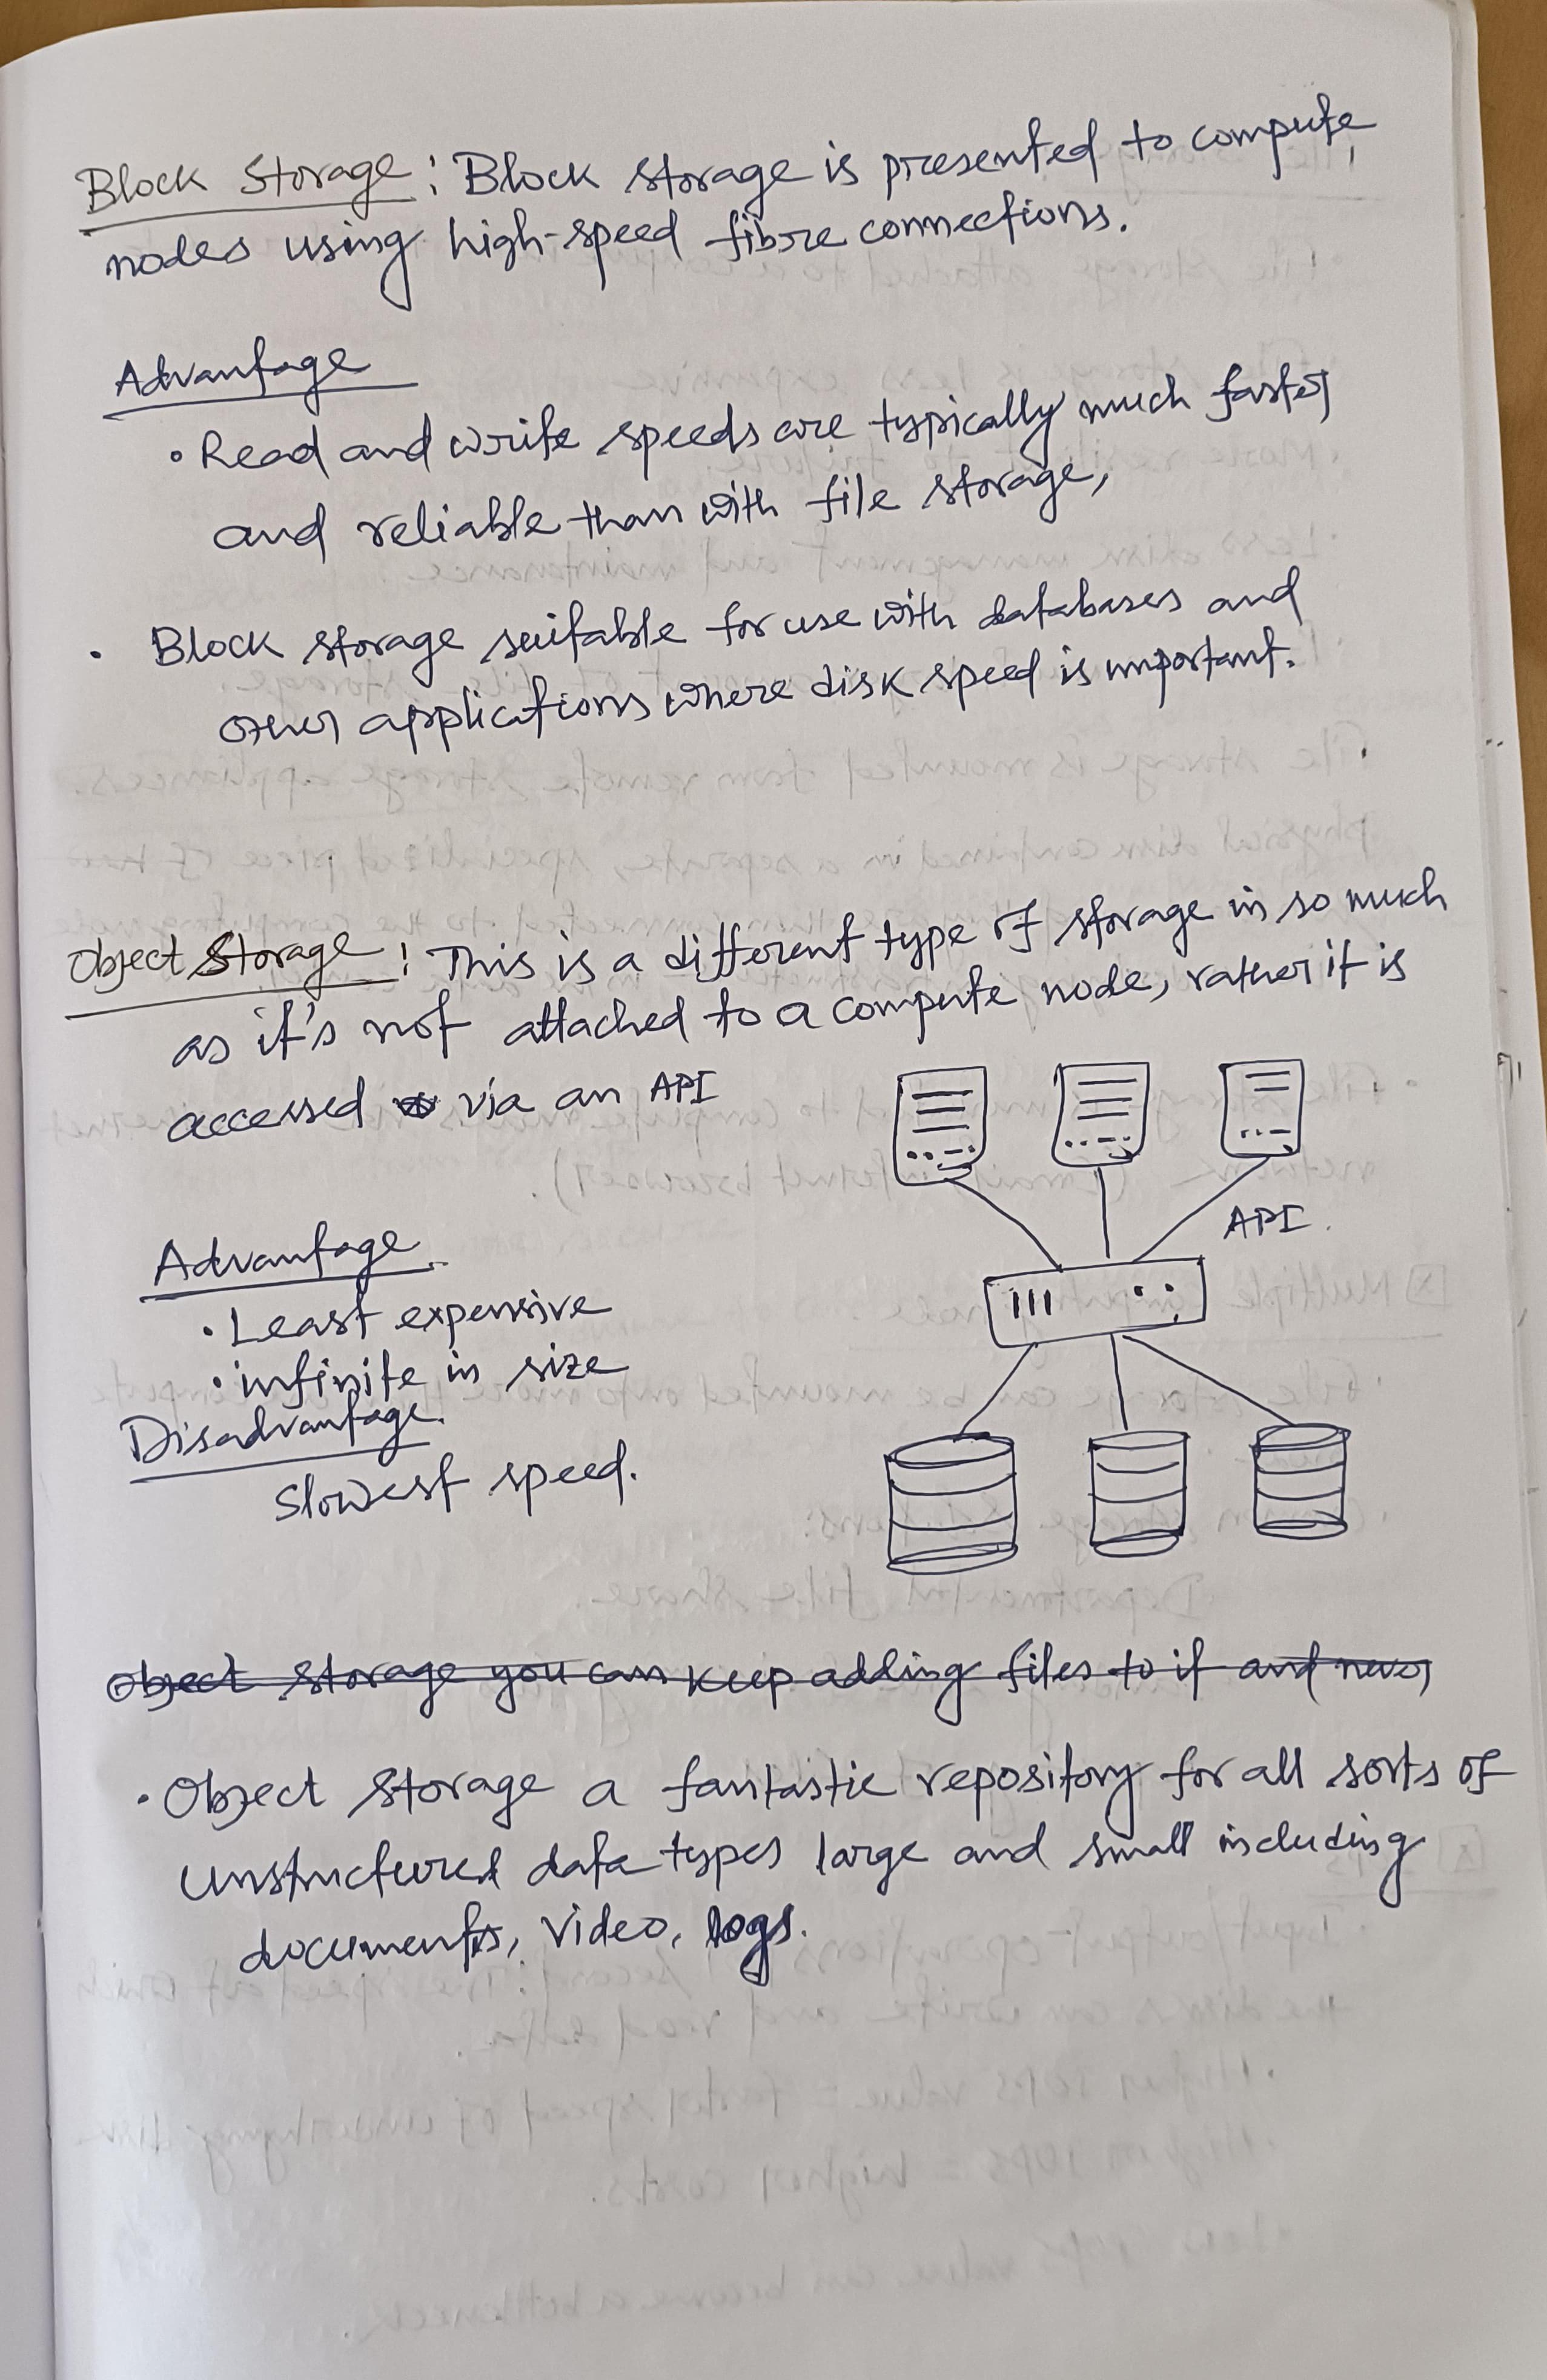 Block Storage : Block storage is presented to compute
nodes using high-speed fibre connections.
Advantage
• Read and write speeds are typically much faster
and reliable than with file storage,
• Block storage suitable for use with databases and
other applications where disk speed is important.
Object Storage : This is a different type of storage in so much
as it's not attached to a compute node, rather it is
accessed via an API
API.
Advantage
• Least expensive
• infinite in size
Disadvantage
Slowest speed.
Object storage you can keep adding files to it and never
• Object storage a fantastic repository for all sorts of
unstructured data types large and small including
documents, video, logs.